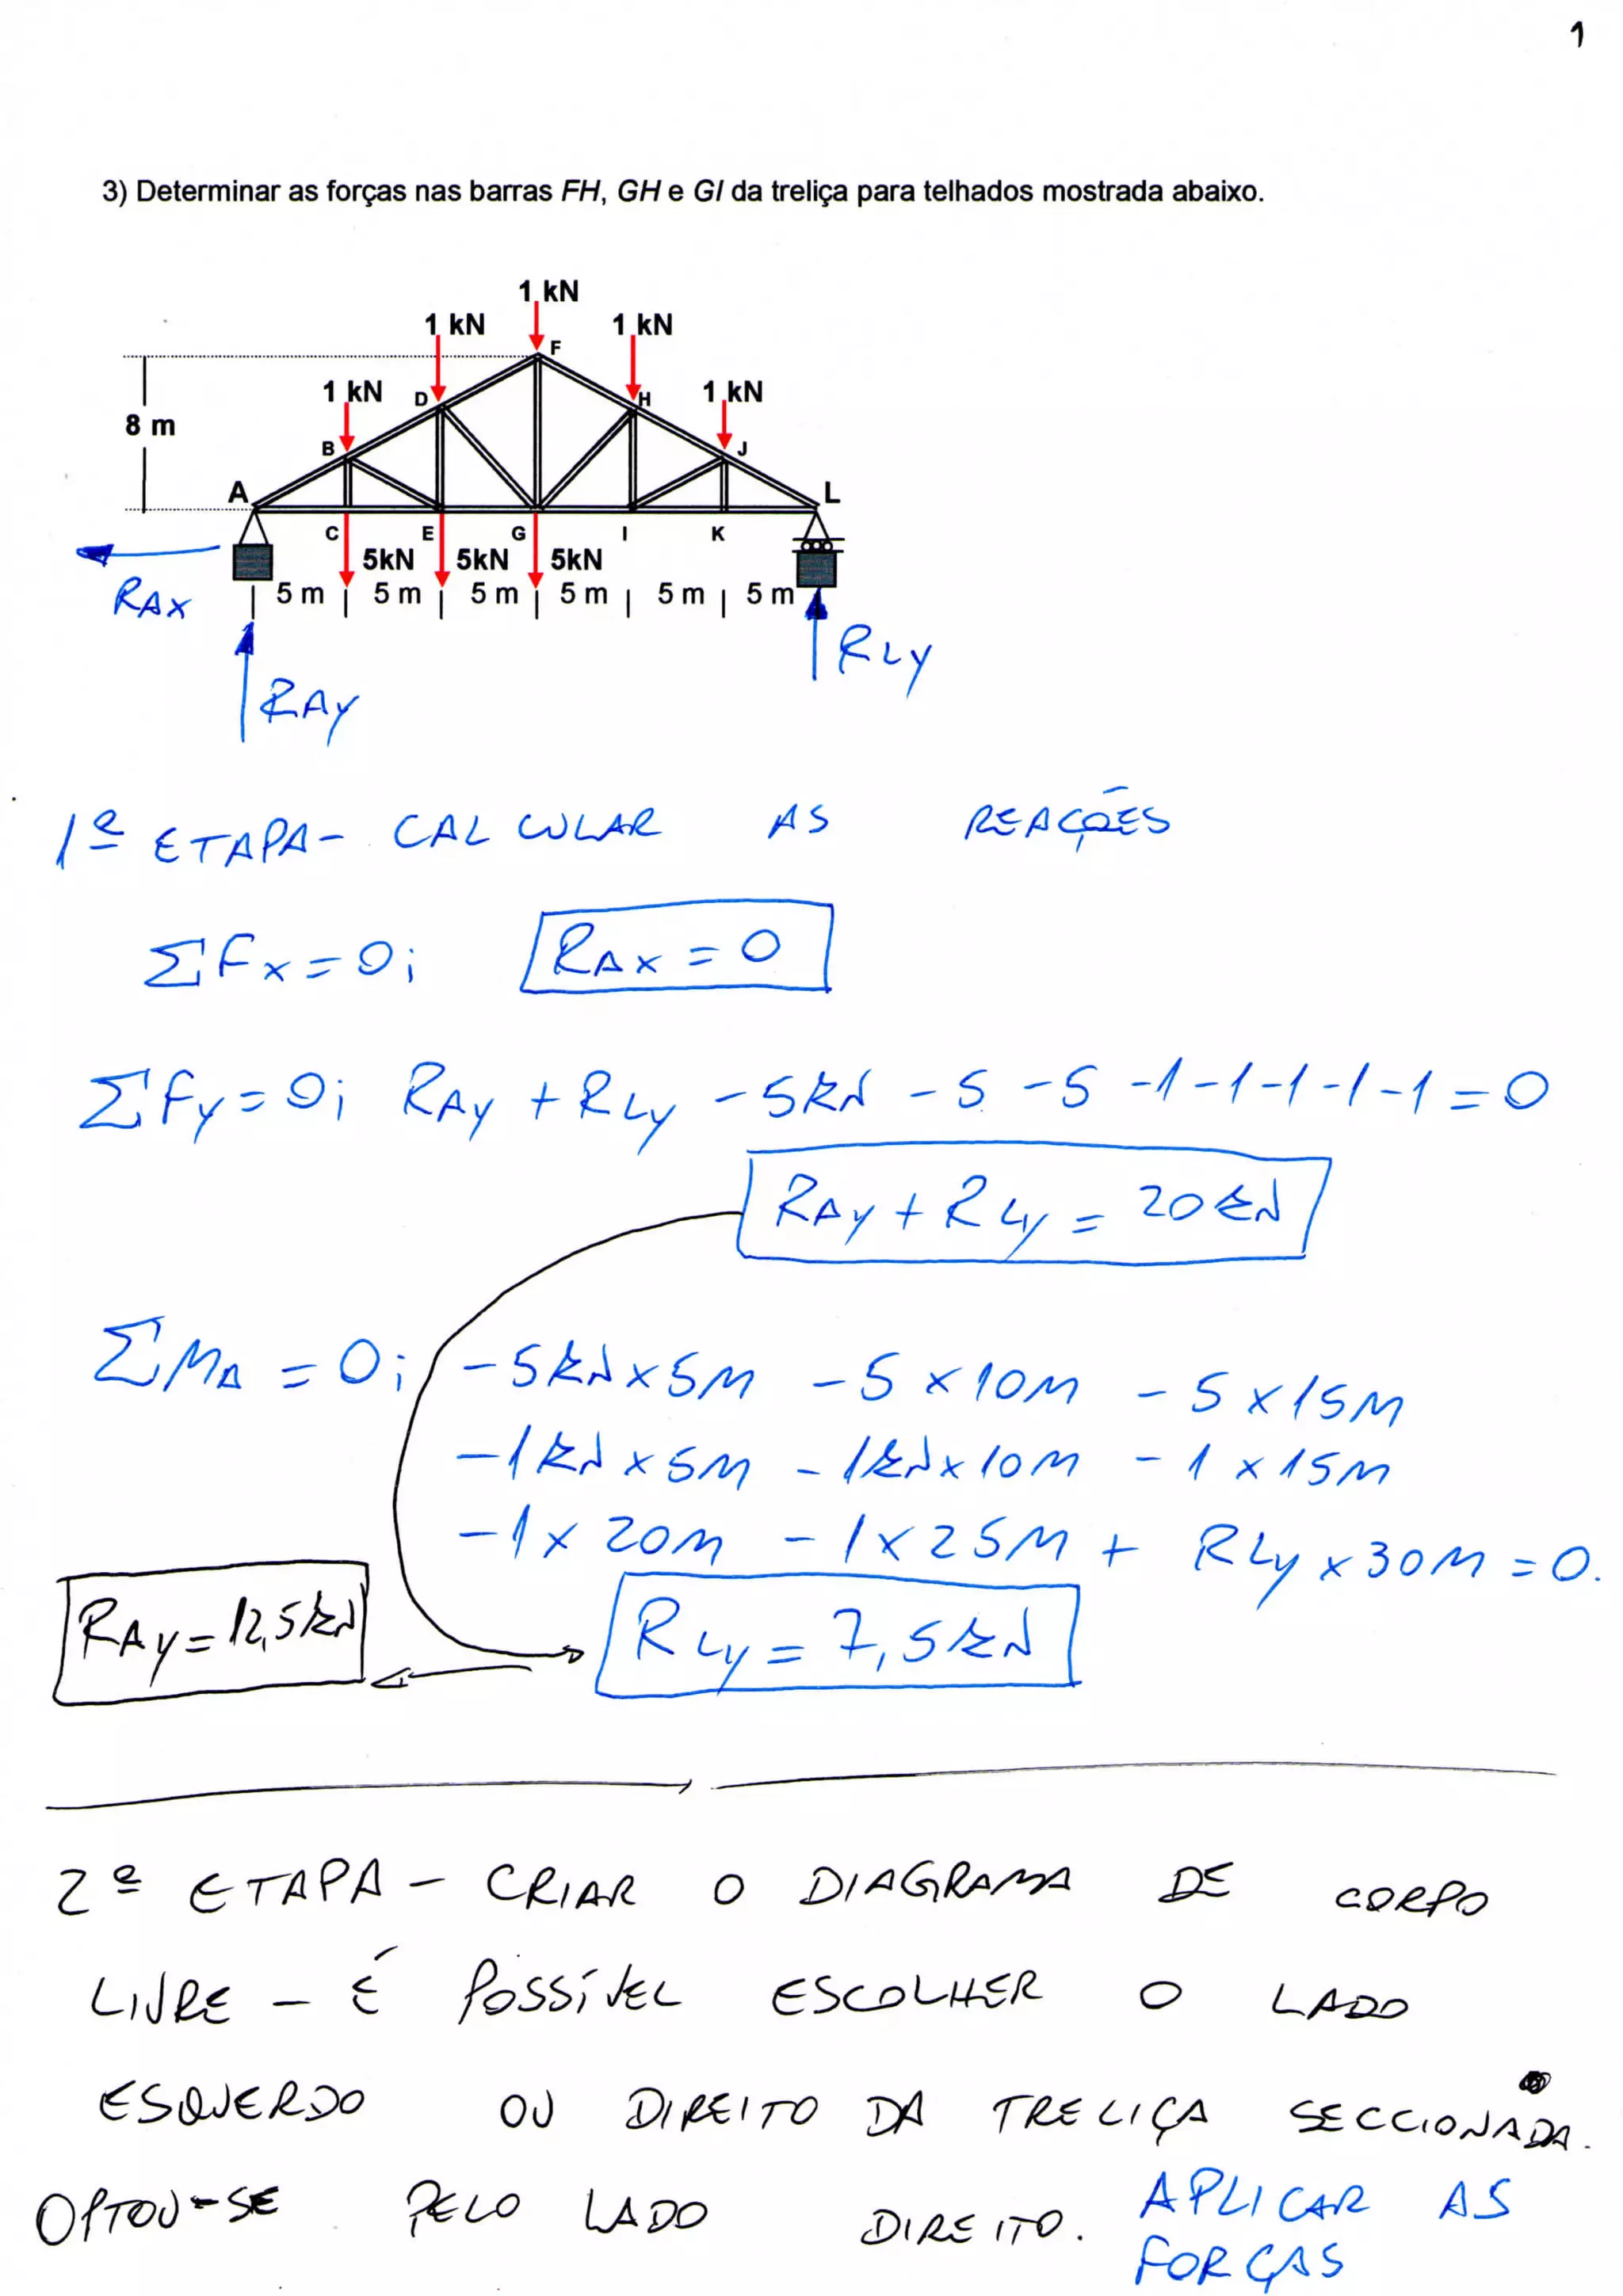 1
3) Determinar as forças nas barras FH, GH e GI da treliça para telhados mostrada abaixo.
1 kN
1 kN 1 kN
F
1 kN D H 1 kN
8 m
B J
A L
C E G I K
5kN 5kN 5kN
RAX 5 m 5 m 5 m 5 m 5 m 5 m
RLY
RAY
1ª ETAPA - CALCULAR AS REAÇÕES
ΣFx = 0; RAX = 0
ΣFy = 0; RAY + RLY - 5kN - 5 - 5 -1 -1 -1 -1 -1 = 0
RAY + RLY = 20kN
ΣMA = 0; -5kN x 5M - 5 x 10M - 5 x 15M
-1kN x 5M - 1kN x 10M - 1 x 15M
-1 x 20M - 1 x 25M + RLY x 30M = 0.
RAY = 12,5kN RLY = 7,5kN
2ª ETAPA - CRIAR O DIAGRAMA DE CORPO
LIVRE - É POSSÍVEL ESCOLHER O LADO
ESQUERDO OU DIREITO DA TRELIÇA SECCIONADA.
OPTOU-SE PELO LADO DIREITO. APLICAR AS
FORÇAS